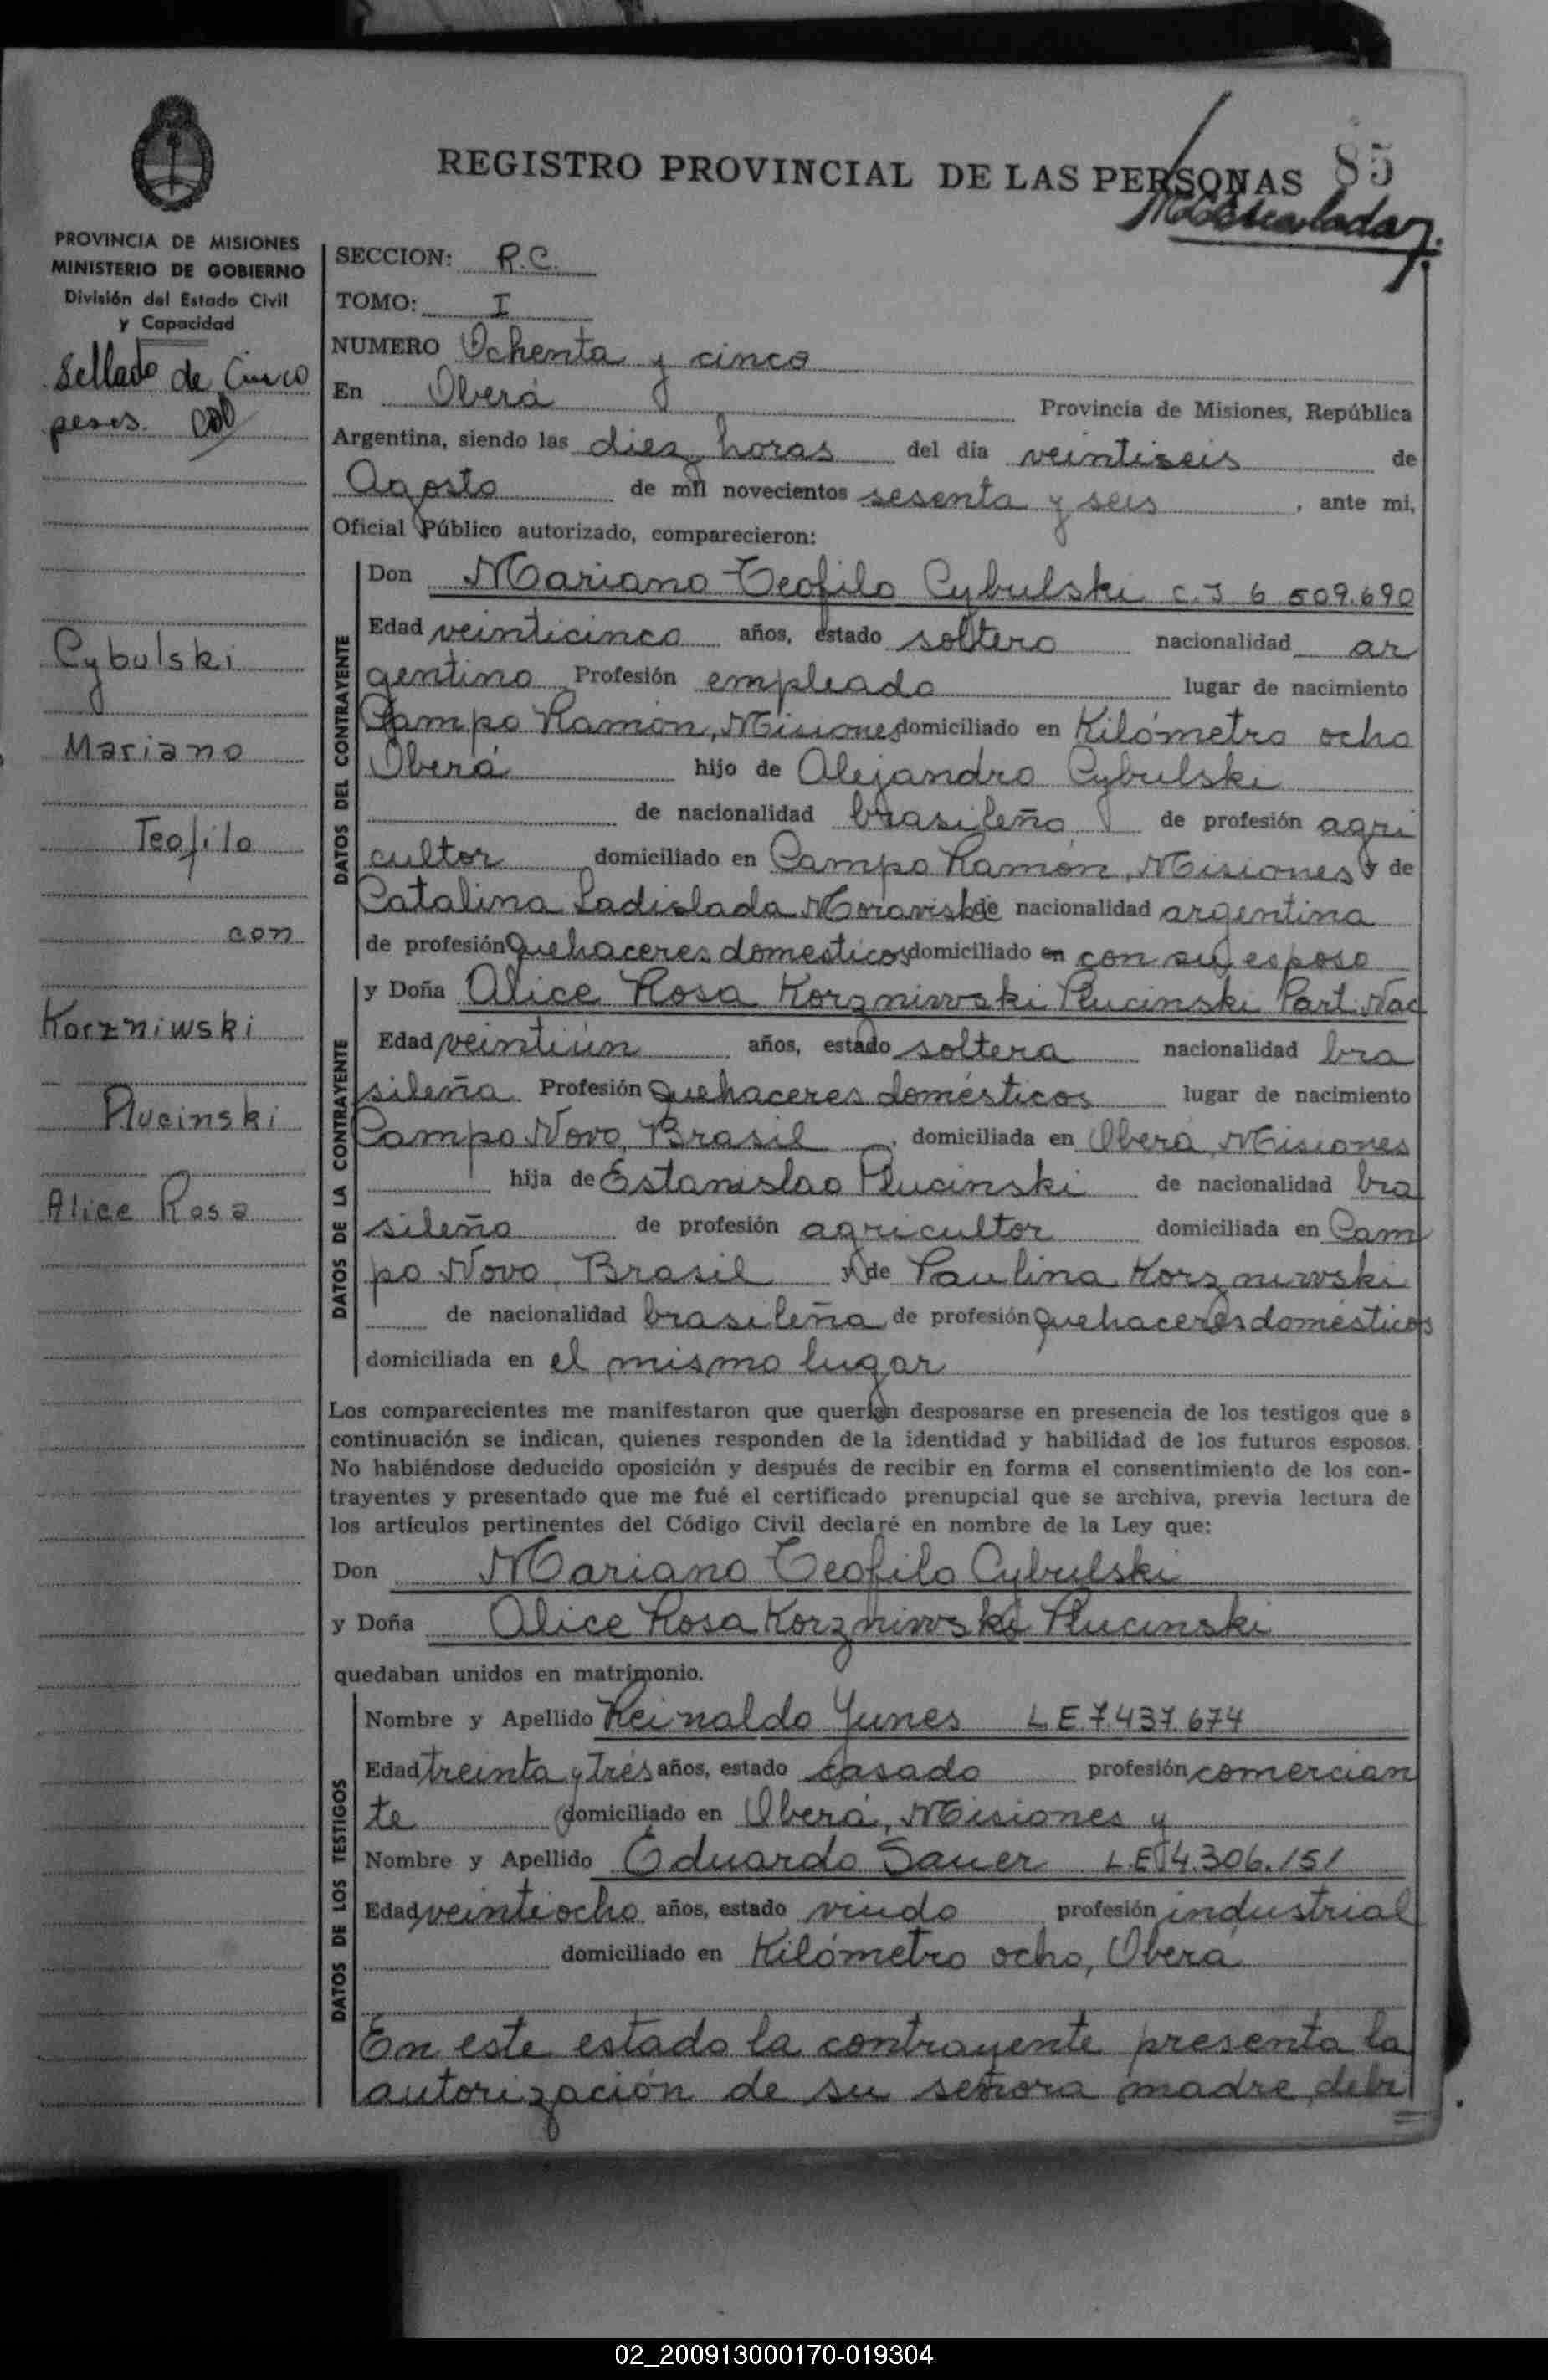 REGISTRO PROVINCIAL DE LAS PERSONAS 85
PROVINCIA DE MISIONES
MINISTERIO DE GOBIERNO
División del Estado Civil
y Capacidad
Sellado de Cinco
pesos.
Cybulski
Mariano
Teofilo
con
Korzniwski
Plucinski
Alice Rosa
SECCION: R.C.
TOMO: I
NUMERO Ochenta y cinco
En Oberá Provincia de Misiones, República
Argentina, siendo las diez horas del día veintiseis de
Agosto de mil novecientos sesenta y seis, ante mi,
Oficial Público autorizado, comparecieron:
DATOS DEL CONTRAYENTE
Don Mariano Teofilo Cybulski C.I 6 509.690
Edad veinticinco años, estado soltero nacionalidad ar
gentino Profesión empleado lugar de nacimiento
Campo Ramón, Misiones domiciliado en Kilómetro ocho
Oberá hijo de Alejandro Cybulski
de nacionalidad brasileño de profesión agri
cultor domiciliado en Campo Ramón, Misiones y de
Catalina Ladislada Moraviski de nacionalidad argentina
de profesión Quehaceres domesticos domiciliado en con su esposo
DATOS DE LA CONTRAYENTE
y Doña Alice Rosa Korzniwski Plucinski Part. Nac
Edad veintiún años, estado soltera nacionalidad bra
sileña Profesión Quehaceres domésticos lugar de nacimiento
Campo Novo, Brasil, domiciliada en Oberá, Misiones
hija de Estanislao Plucinski de nacionalidad bra
sileño de profesión agricultor domiciliada en Cam
po Novo, Brasil y de Paulina Korzniwski
de nacionalidad brasileña de profesión Quehaceres domésticos
domiciliada en el mismo lugar
Los comparecientes me manifestaron que querían desposarse en presencia de los testigos que a
continuación se indican, quienes responden de la identidad y habilidad de los futuros esposos.
No habiéndose deducido oposición y después de recibir en forma el consentimiento de los con-
trayentes y presentado que me fué el certificado prenupcial que se archiva, previa lectura de
los artículos pertinentes del Código Civil declaré en nombre de la Ley que:
Don Mariano Teofilo Cybulski
y Doña Alice Rosa Korzniwski Plucinski
quedaban unidos en matrimonio.
DATOS DE LOS TESTIGOS
Nombre y Apellido Reinaldo Yunes L E 7.437.674
Edad treinta y tres años, estado casado profesión comercian
te domiciliado en Oberá, Misiones y
Nombre y Apellido Eduardo Sauer L.E 4.306.151
Edad veintiocho años, estado viudo profesión industrial
domiciliado en Kilómetro ocho, Oberá
En este estado la contrayente presenta la
autorización de su señora madre, debi
02_200913000170-019304